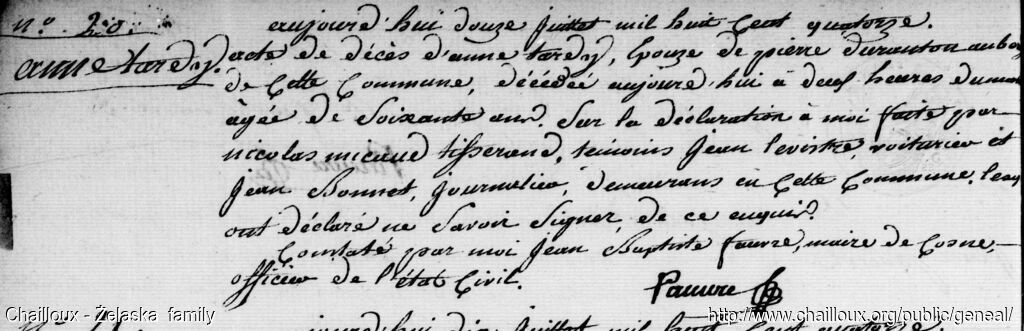 n.° 20.
anne tardy.
aujourd'hui douze juillet mil huit cent quatorze.
acte de décès d'anne tardy, Epouze de pierre Duranton
de Cette Commune, décédée aujourd'hui à deux heures du
agée de Soixante ans. Sur la déclaration à moi faite par
nicolas micaud tisserand, temoins jean levistre, voiturier et
jean Bonnet, journalier, demeurans en Cette Commune.
ont déclaré ne Savoir Signer, de ce enquis.
Constaté par moi jean Baptiste fauvre, maire de Cosne,
officier de l'état Civil.
fauvre
Chailloux - Żelaska family
http://www.chailloux.org/public/geneal/